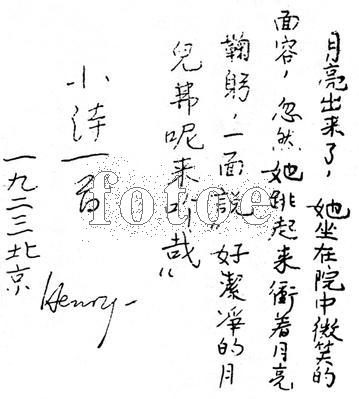 月亮出来了，她坐在院中微笑的
面容，忽然她跳起来衝着月亮
鞠躬，一面說"好潔凈的月
兒弗呢来哉"
小诗一首
一九二三北京
Henry
fotoe